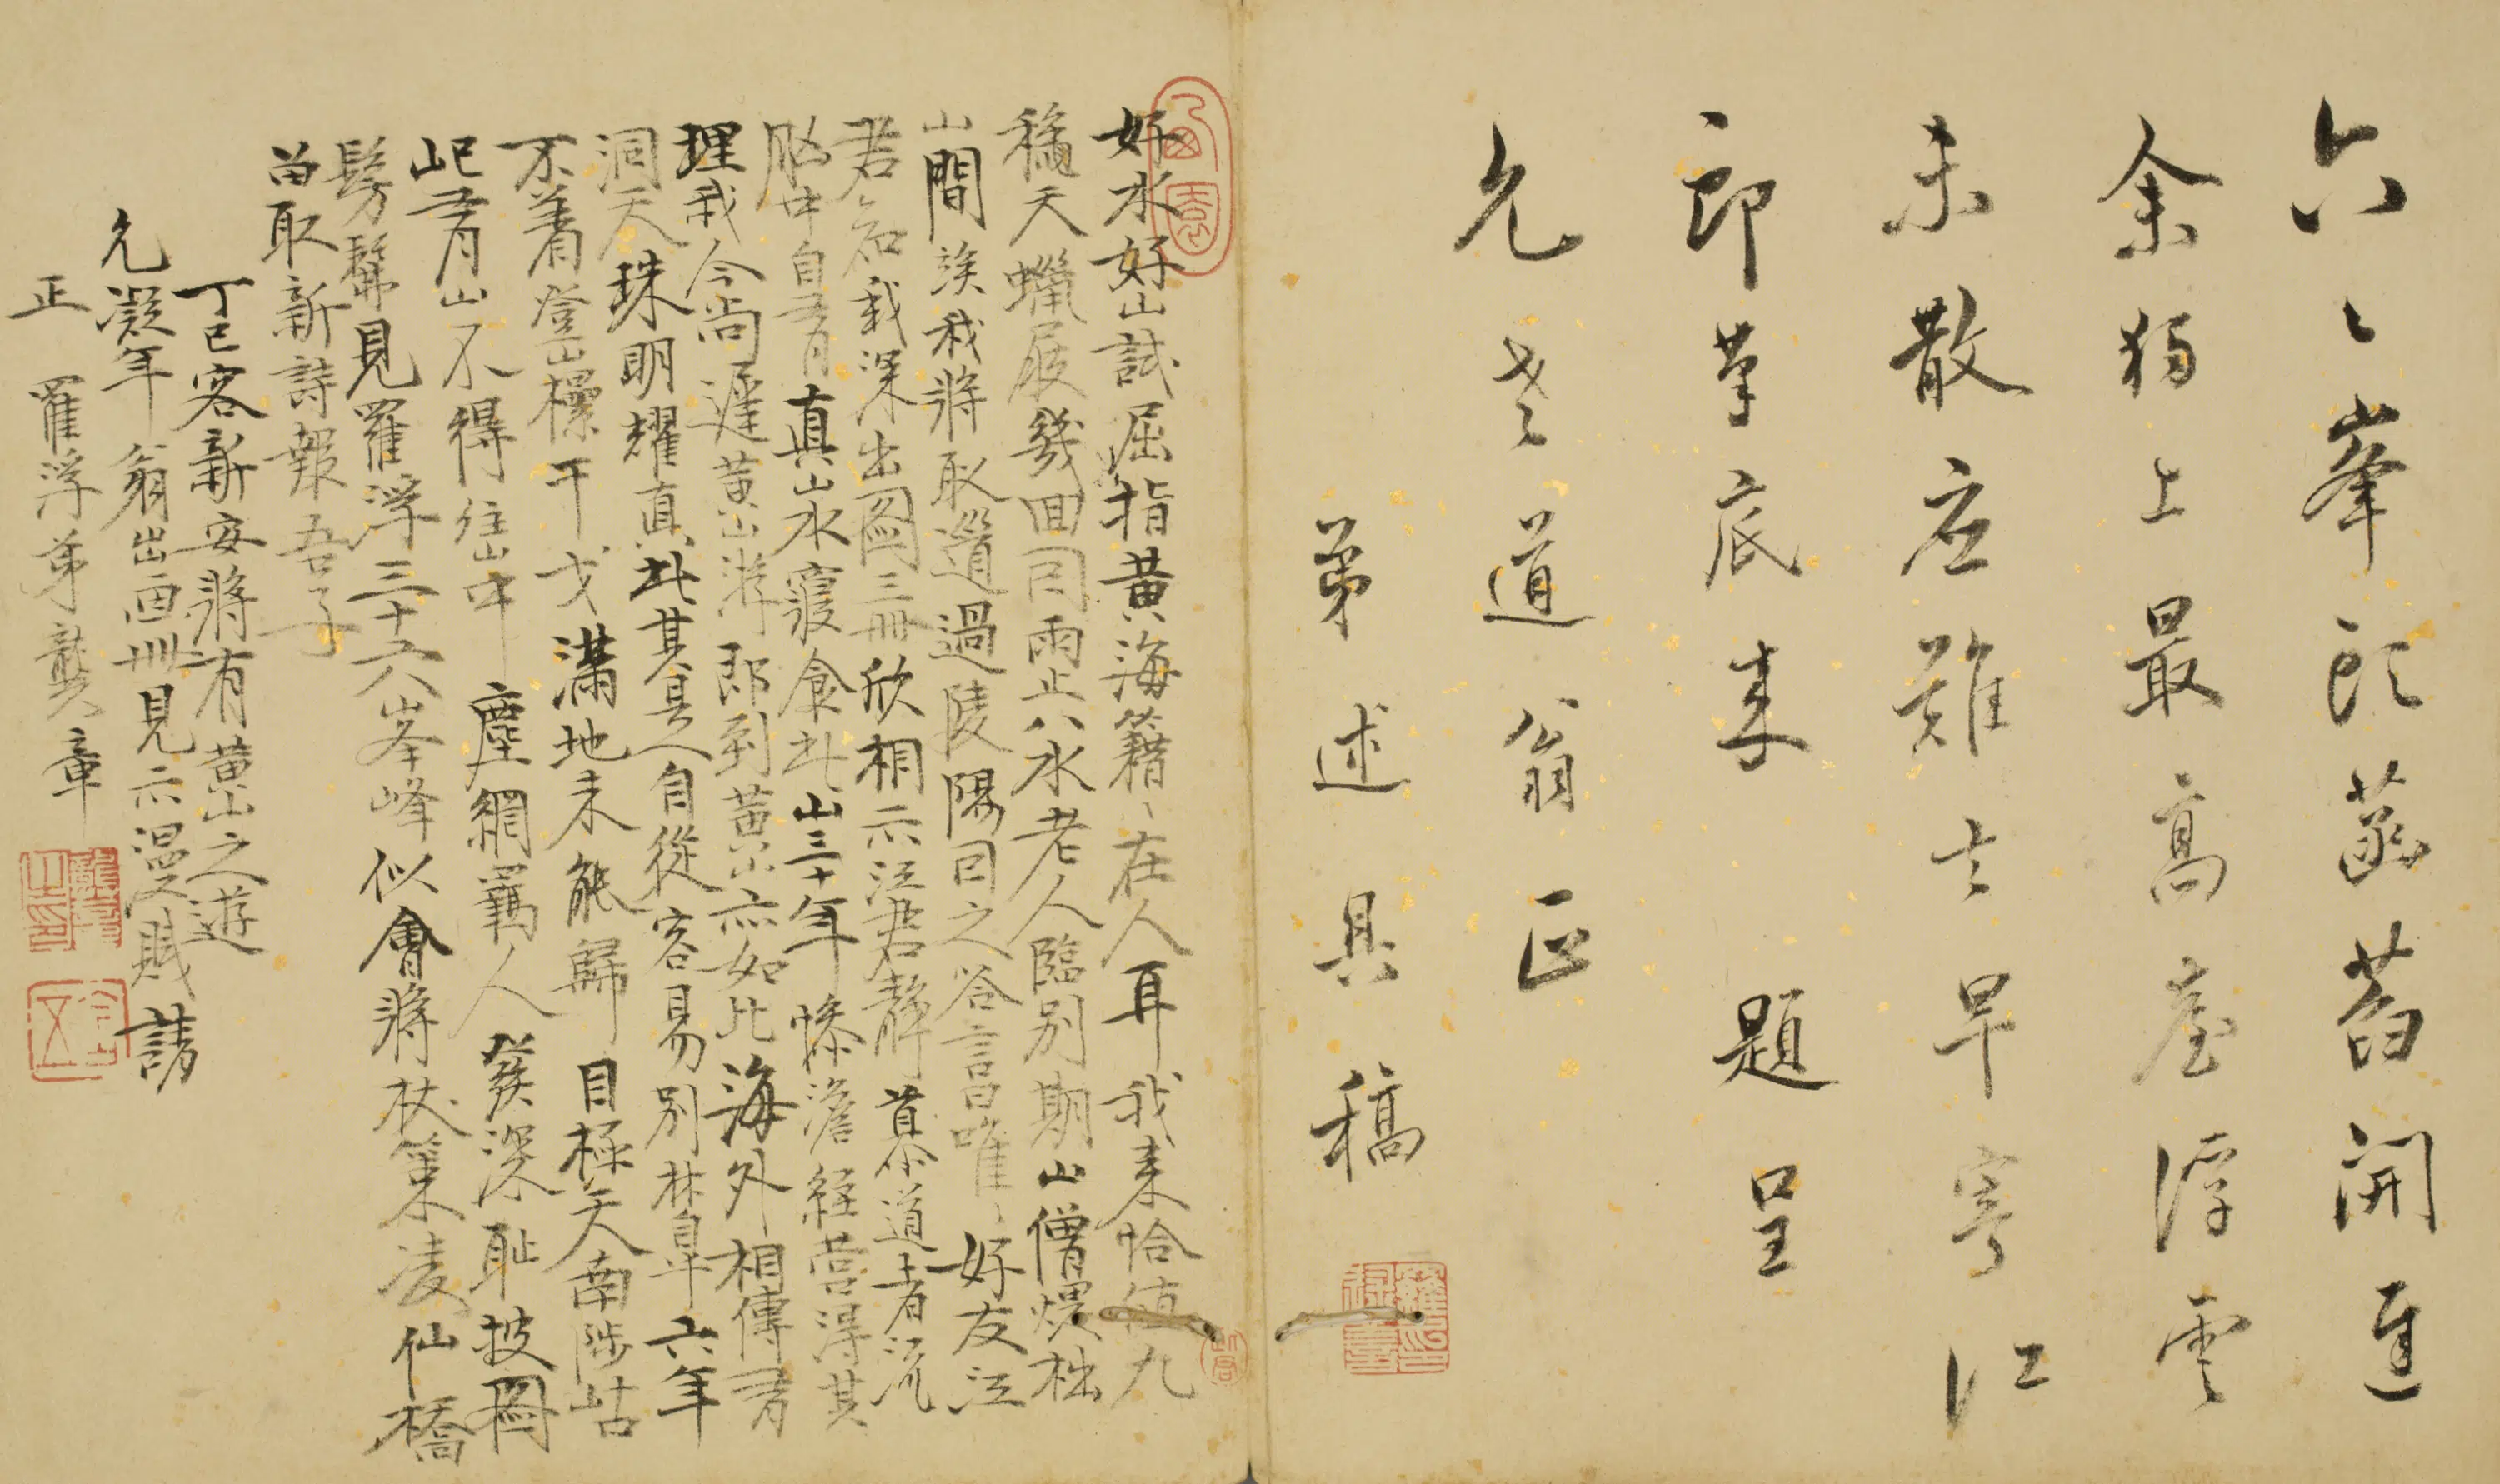 六〻峯頭菡萏開遲
余獨上最高臺浮雲
未散應難去早寄江
郎筆底來 題呈
允老道翁正
弟述具稿
好水好山試屈指黃海籍〻在人耳我來恰值九
穐天蠟屐幾回同雨止八水老人臨別期山僧煨枯
山間
俟我將取道過陵陽同之答言唯〻好友江
君知我深出圖三冊欣相示江君靜慕道者流
胸中自有真山水寢食此山三十年慘澹經營得其
理我今尚遲黃山游即到黃山亦如此海外相傳有
洞天珠明耀真北其具人自從容易別林皐六年
不着登山樏干戈滿地未能歸目極天南陟岵
屺青山不得往山中塵網羈人發深恥披圖
髣髴見羅浮三十六峯峰似會將杖策凌仙橋
留取新詩報吾子
丁巳客新安將有黃山之遊
允凝年翁出画冊見示漫賦請
正 羅浮弟龔章